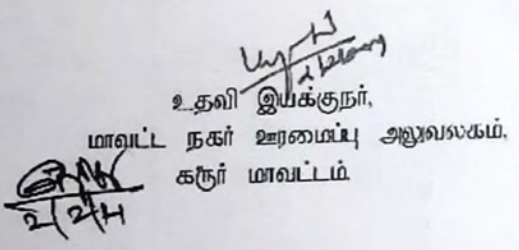 உதவி இயக்குநர்,
மாவட்ட நகர் ஊரமைப்பு அலுவலகம்,
கரூர் மாவட்டம்.